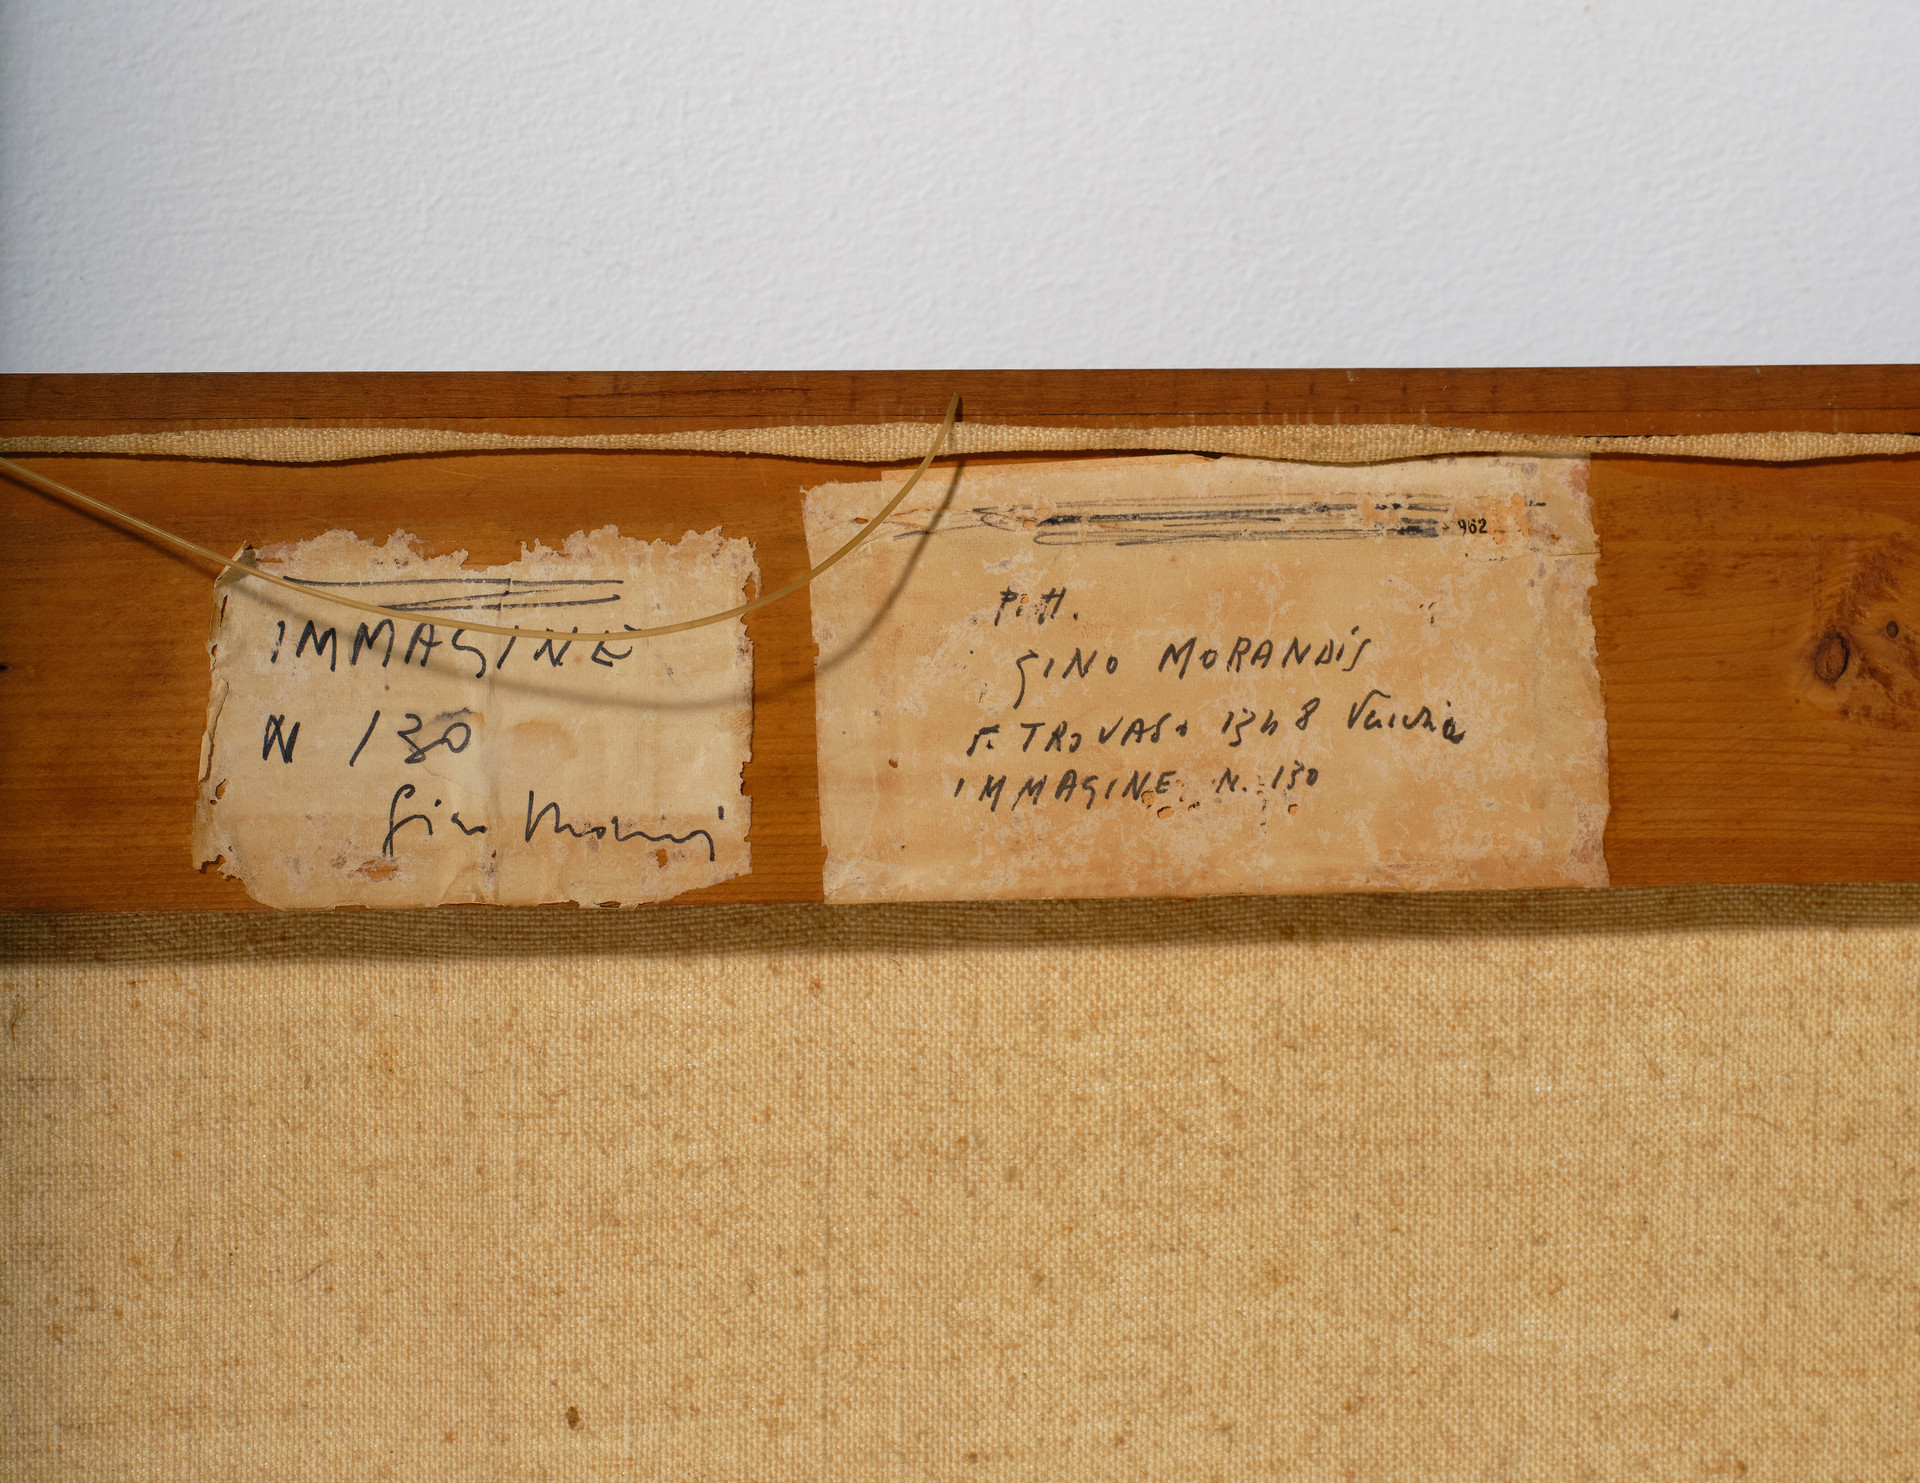 IMMAGINE
N 130
Gino Morandi
962
Pitt.
GINO MORANDIS
S. TROVASO 1348 Venezia
IMMAGINE N. 130